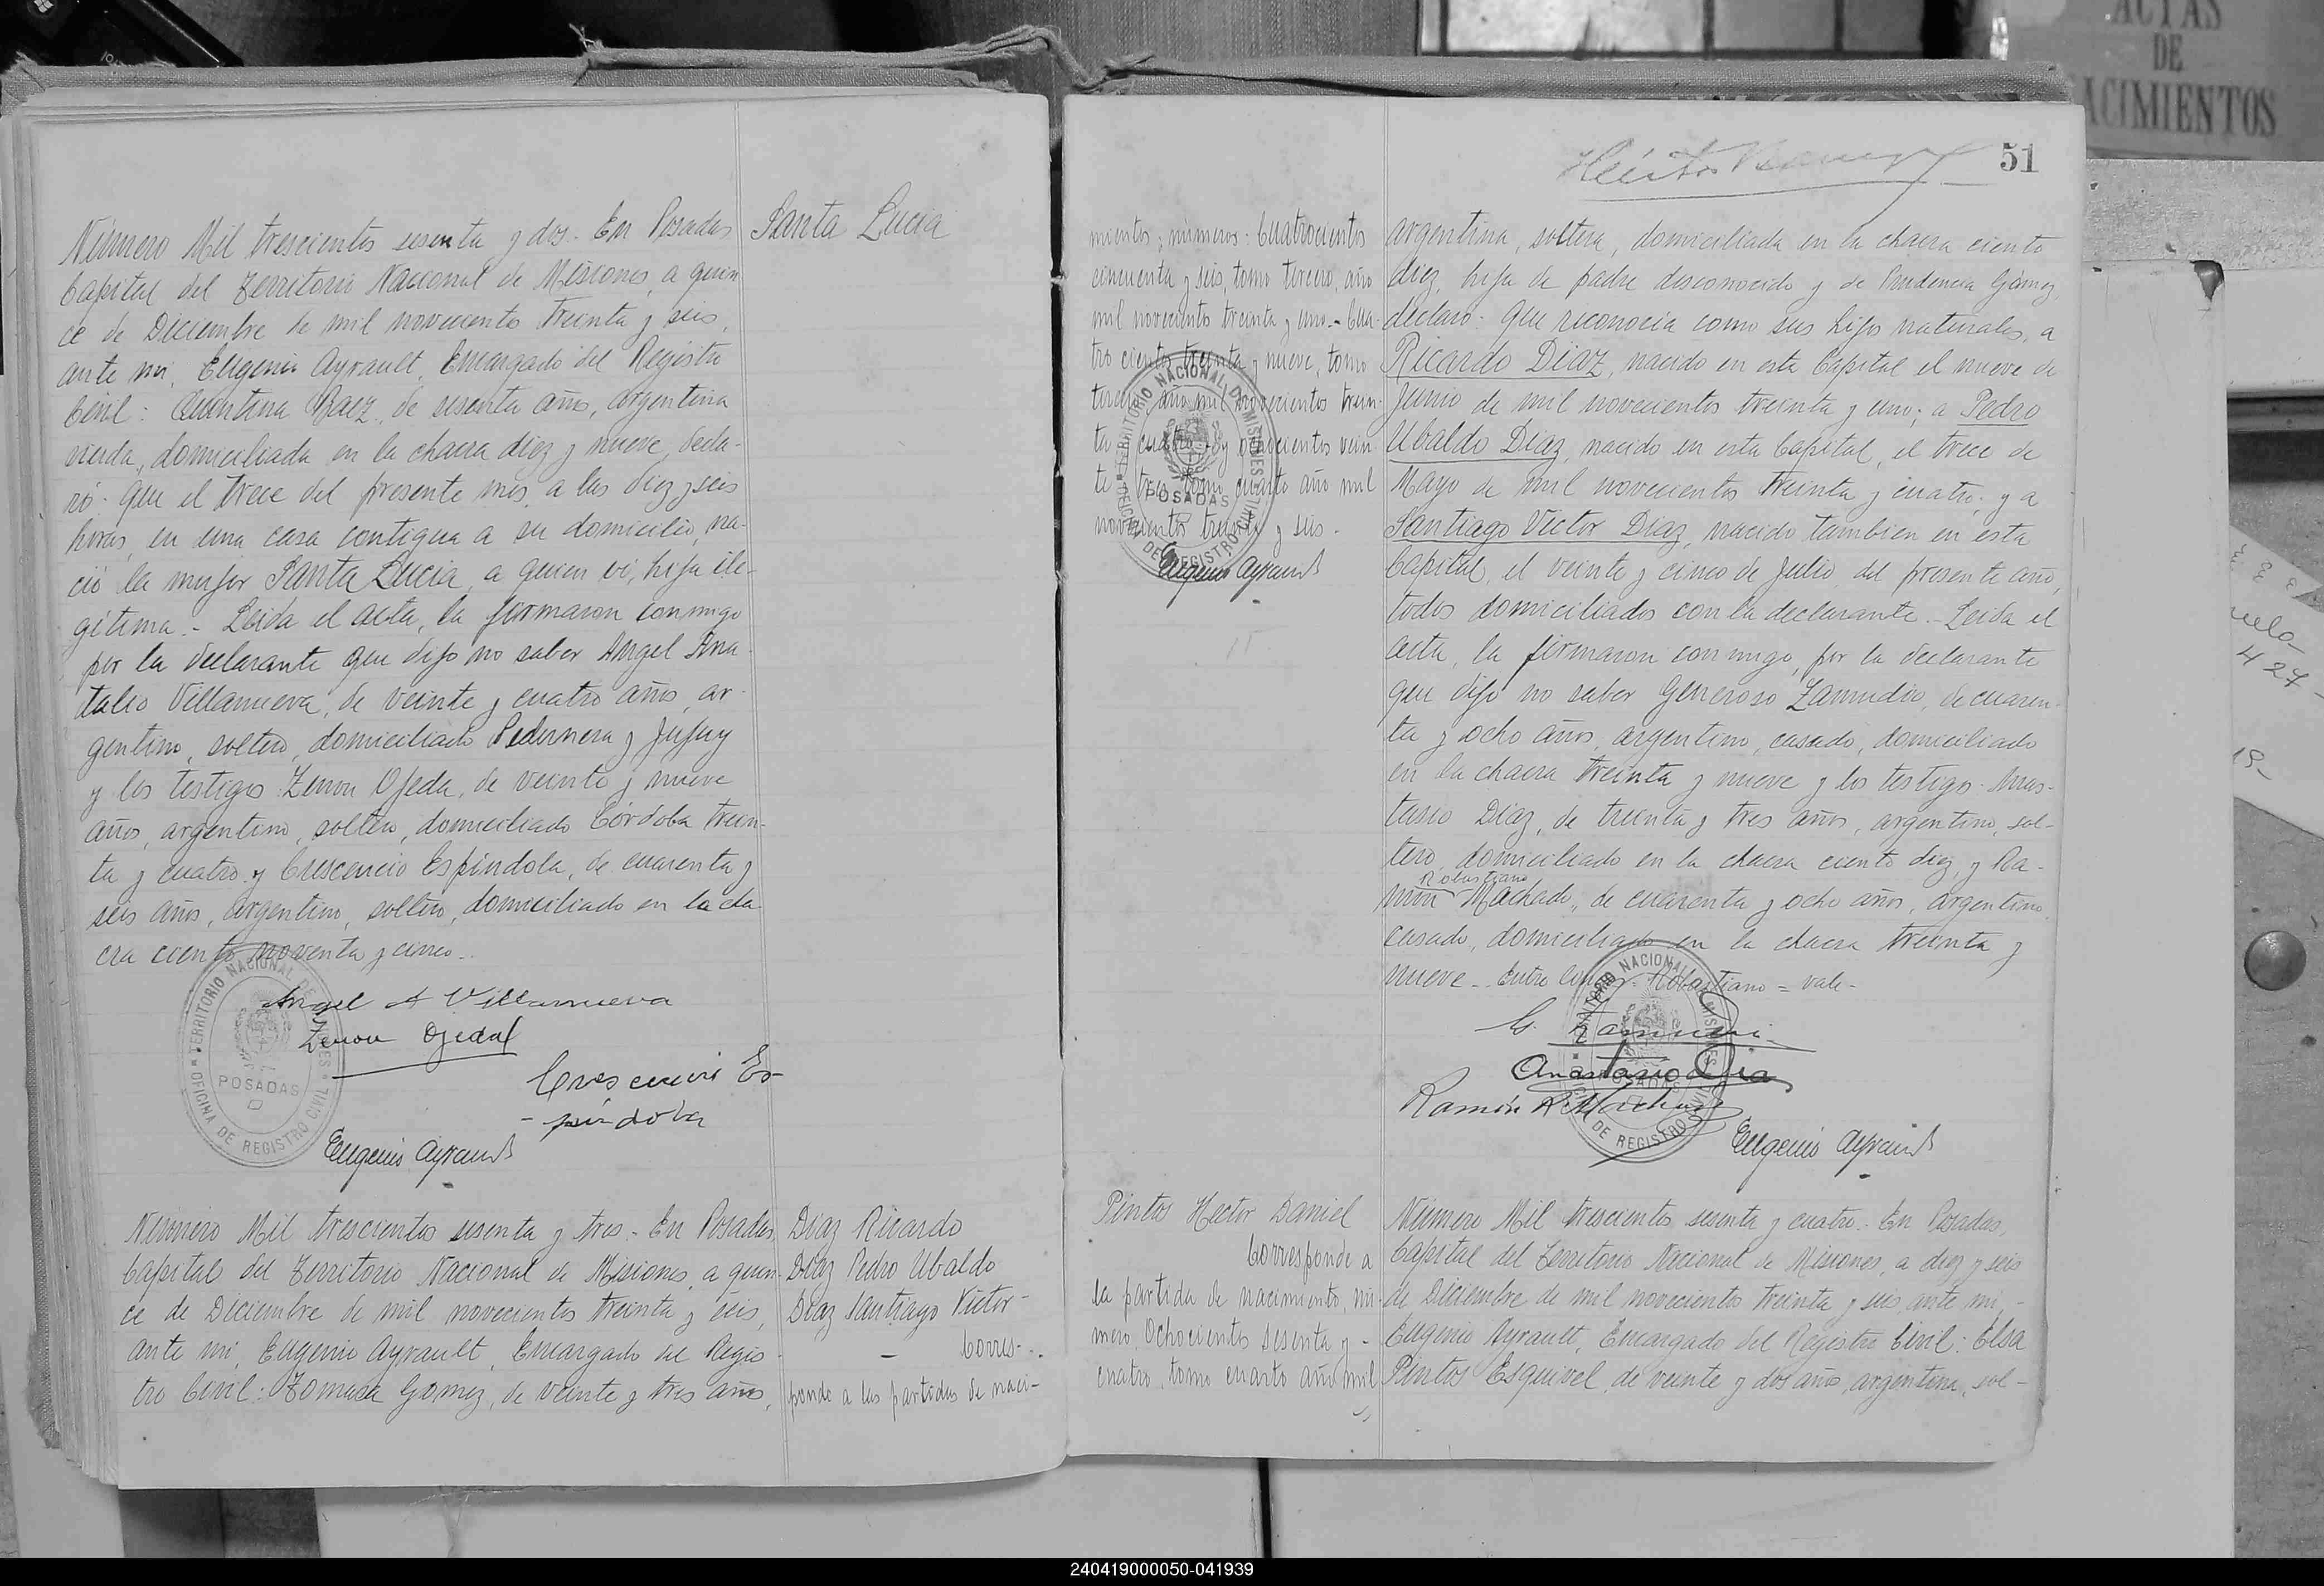 ACTAS
DE
NACIMIENTOS
Número Mil trescientos sesenta y dos.- En Posadas
Capital del Territorio Nacional de Misiones, a quin
ce de Diciembre de mil novecientos treinta y seis,
ante mi, Eugenio Ayrault, Encargado del Registro
Civil: Quintina Baez, de sesenta años, argentina
viuda, domiciliada en la chacra diez y nueve, decla-
ró: que el trece del presente mes, a las diez y seis
horas, en una casa contigua a su domicilio, na-
ció la mujer Santa Lucia, a quien vi, hija ile-
gitima.- Leida el acta, la firmaron conmigo
por la declarante que dijo no saber Angel Ana
talio Villanueva, de veinte y cuatro años, ar-
gentino, soltero, domiciliado Pedernera y Jujuy
y los testigos Zenon Ojeda, de veinte y nueve
años, argentino, soltero, domiciliado Córdoba trein-
ta y cuatro y Crescencio Espíndola, de cuarenta y
seis años, argentino, soltero, domiciliado en la cha
cra ciento noventa y cinco.-
Santa Lucia
Angel A Villanueva
Zenon Ojeda
Crescencio Es-
- píndola
Eugenio Ayrault
TERRITORIO NACIONAL DE MISIONES
POSADAS
OFICINA DE REGISTRO CIVIL
Número Mil trescientos sesenta y tres.- En Posadas,
Capital del Territorio Nacional de Misiones, a quin-
ce de Diciembre de mil novecientos treinta y seis,
ante mi, Eugenio Ayrault, Encargado del Regis-
tro Civil: Tomasa Gomez, de veinte y tres años,
Diaz Ricardo
Diaz Pedro Ubaldo
Diaz Santiago Victor-
- Corres-
ponde a las partidas de naci-
51
mientos, números: Cuatrocientos
cincuenta y seis, tomo tercero, año
mil novecientos treinta y uno.- Cua-
tro ciento treinta y nueve, tomo
tercero, año mil novecientos trein-
ta y cuatro y ochocientos vein-
te y tres, tomo cuarto año mil
novecientos treinta y seis.-
Eugenio Ayrault
TERRITORIO NACIONAL DE MISIONES
POSADAS
OFICINA DE REGISTRO CIVIL
argentina, soltera, domiciliada en la chacra ciento
diez, hija de padre desconocido y de Prudencia Gómez,
declaró: Que reconocia como sus hijos naturales, a
Ricardo Diaz, nacido en esta Capital el nueve de
Junio de mil novecientos treinta y uno; a Pedro
Ubaldo Diaz, nacido en esta Capital, el trece de
Mayo de mil novecientos treinta y cuatro; y a
Santiago Victor Diaz, nacido tambien en esta
Capital, el veinte y cinco de Julio del presente año,
todos domiciliados con la declarante.- Leida el
acta, la firmaron conmigo, por la declarante
que dijo no saber Generoso Zamudio, de cuaren-
ta y ocho años, argentino, casado, domiciliado
en la chacra treinta y nueve y los testigos Anas-
tasio Diaz, de treinta y tres años, argentino, sol-
tero, domiciliado en la chacra ciento diez, y Ra-
Robustiano
món Machado, de cuarenta y ocho años, argentino,
casado, domiciliado en la chacra treinta y
nueve.- Entre lineas- Robustiano = vale-
G. Zamudio
Anastasio Dias
Ramón R. Machado
Eugenio Ayrault
TERRITORIO NACIONAL DE MISIONES
POSADAS
OFICINA DE REGISTRO CIVIL
Pintos Hector Daniel
Corresponde a
la partida de nacimiento, nú-
mero Ochocientos sesenta y -
cuatro, tomo cuarto año mil
Número Mil trescientos sesenta y cuatro.- En Posadas,
Capital del Territorio Nacional de Misiones, a diez y seis
de Diciembre de mil novecientos treinta y seis, ante mi, -
Eugenio Ayrault, Encargado del Registro Civil: Elsa
Pintos Esquivel, de veinte y dos años, argentina, sol-
424
19-
240419000050-041939